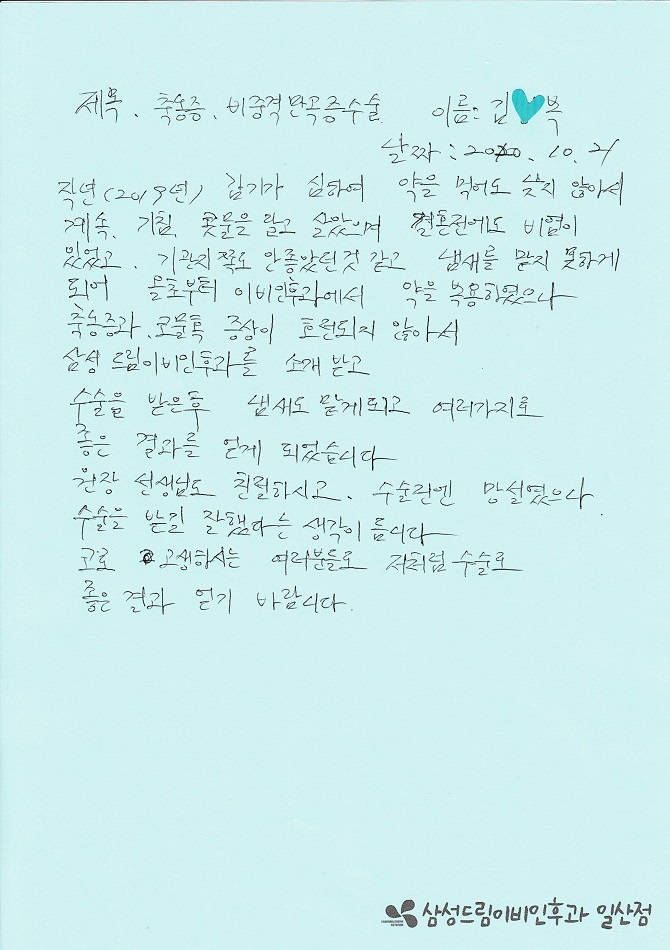 제목. 축농증. 비중격만곡증수술 이름: 김 복
날짜 : 2020. 10. 21
작년(2019년) 감기가 심하여 약을 먹어도 낮지 않아서
계속, 기침, 콧물을 달고 살았으며 결혼전에도 비염이
있었고. 기관지쪽도 안좋았던것 같고 냄새를 맡지 못하게
되어 올초부터 이비인후과에서 약을 복용하였으나
축농증과. 코물혹 증상이 호전되지 않아서
삼성 드림이비인후과를 소개 받고
수술을 받은후 냄새도 맡게되고 여러가지로
좋은 결과를 얻게 되었습니다
원장 선생님도 친절하시고. 수술전엔 망설였으나
수술을 받길 잘했다는 생각이 듭니다
코로 고생하시는 여러분들도 저처럼 수술로
좋은 결과 얻기 바랍니다.
삼성드림이비인후과 일산점